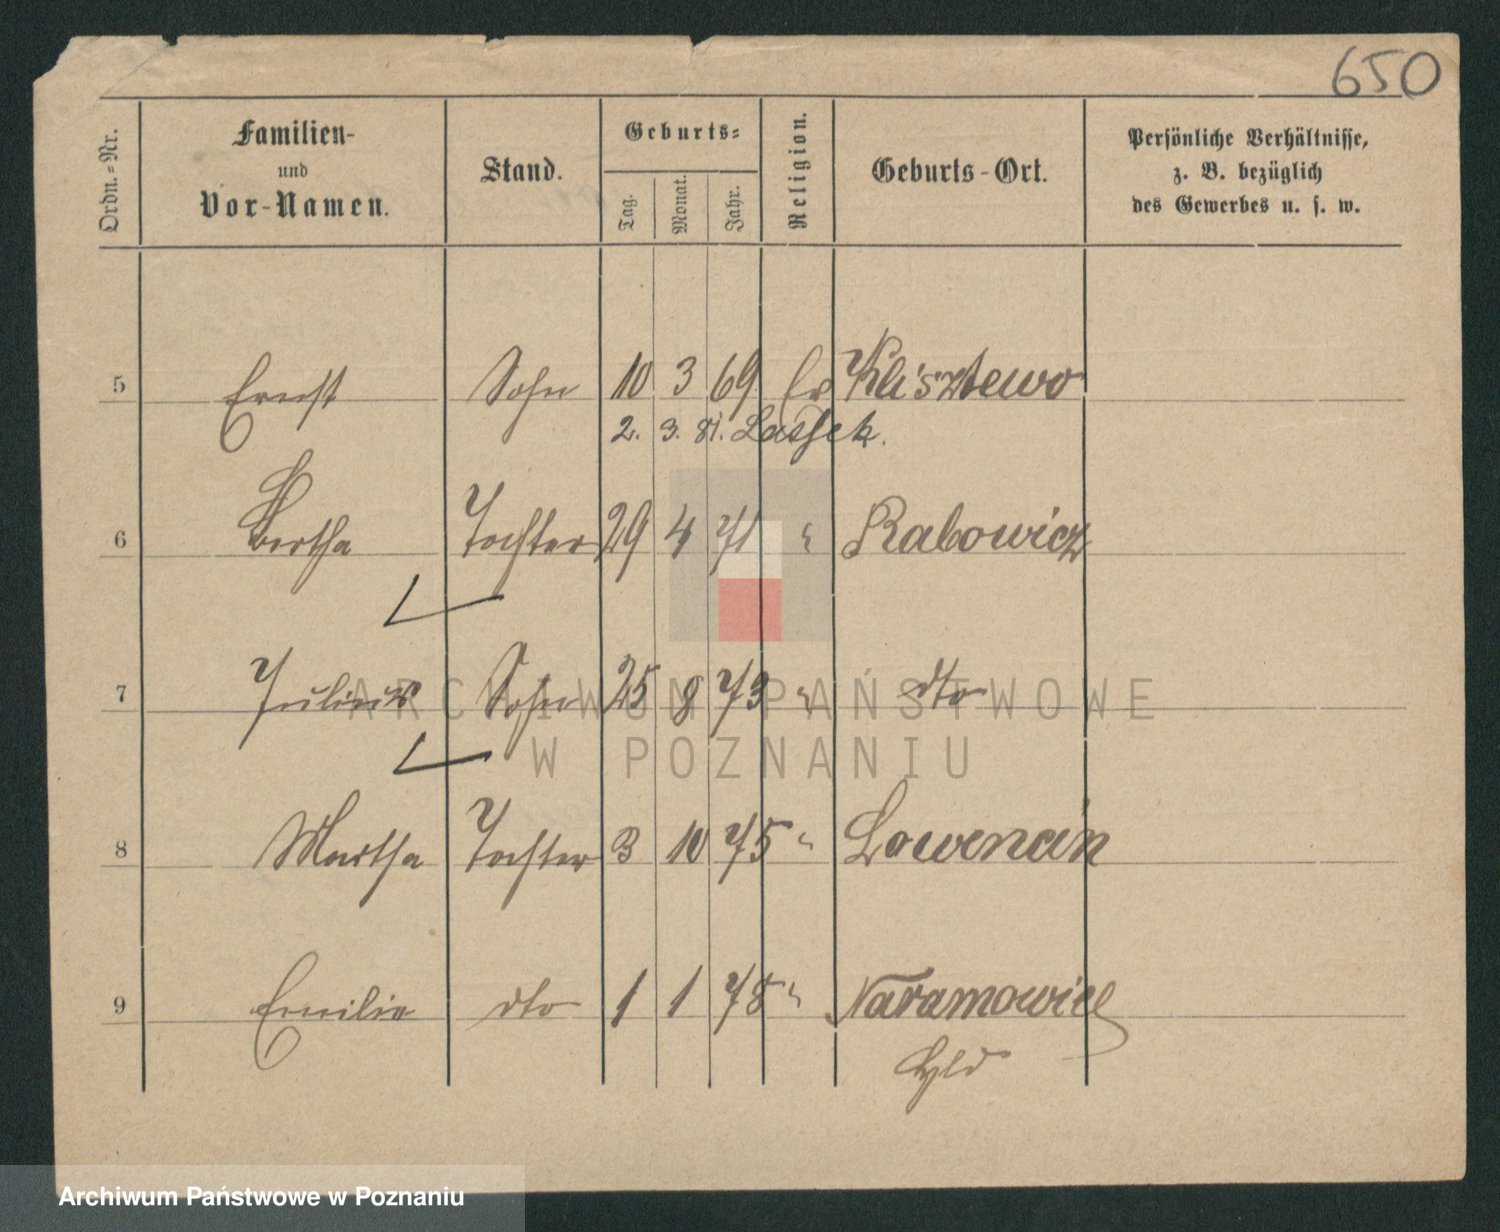 650
Ordn.-Nr.
Familien-
und
Vor-Namen.
Stand.
Geburts-
Tag.
Monat.
Jahr.
Religion.
Geburts-Ort.
Persönliche Verhältnisse,
z. B. bezüglich
des Gewerbes u. s. w.
5 Ernst Sohn 10 3 69 Ev Klisztewo
2. 3. 81. Lassek.
6 Bertha Tochter 29 4 71 " Rabowicz
7 Julius Sohn 25 8 73 " dto
8 Martha Tochter 3 10 75 " Lowencin
9 Emilie dto 1 1 78 " Naramowice
Hld
ARCHIWUM PAŃSTWOWE
W POZNANIU
Archiwum Państwowe w Poznaniu